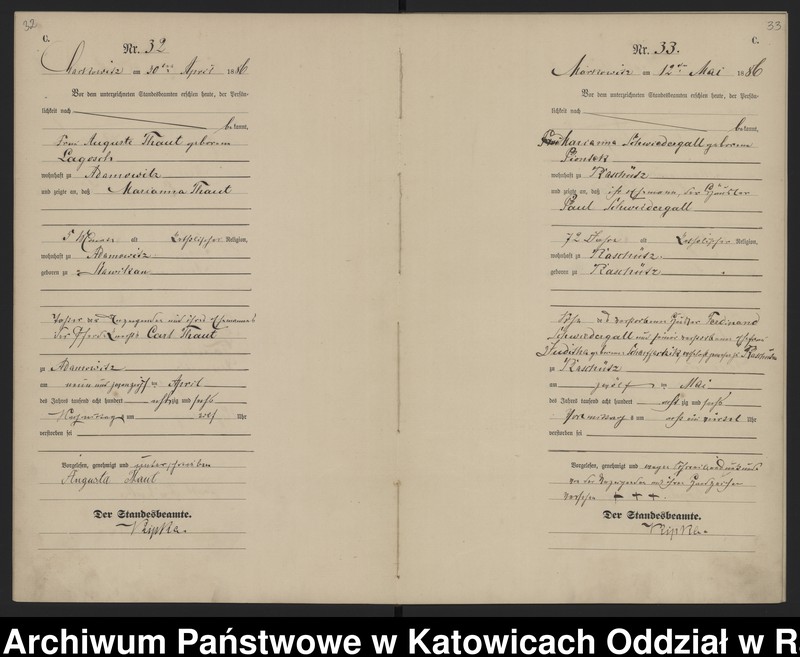 32.
C.
Nr. 32
Markowitz am 30ten April 1886
Vor dem unterzeichneten Standesbeamten erschien heute, der Persön-
lichkeit nach
bekannt,
Frau Auguste Thaut geborene
Lagosch
wohnhaft zu Adamowitz
und zeigte an, daß Marianna Thaut
alt katholischer Religion,
wohnhaft zu Adamowitz
geboren zu
Tochter der Anzeigenden und ihres Ehemannes
Carl Thaut
zu Adamowitz
am neun und zwanzigsten April
des Jahres tausend acht hundert achtzig und sechs
Nachmittags um Uhr
verstorben sei
Vorgelesen, genehmigt und unterschrieben
Augusta Thaut
Der Standesbeamte.
33.
C.
Nr. 33.
Markowitz am 12ten Mai 1886
Vor dem unterzeichneten Standesbeamten erschien heute, der Persön-
lichkeit nach
bekannt,
Frau Marianna Schwierdergall geborene
Piontek
wohnhaft zu Raschütz
und zeigte an, daß ihr Ehemann, der Häusler
Paul Schwierdergall
72 Jahre alt katholischer Religion,
wohnhaft zu Raschütz
geboren zu Raschütz
Sohn des verstorbenen Häusler Ferdinand
Schwierdergall und seiner verstorbenen Ehefrau
geborene Raschütz
zu Raschütz
am zwölf ten Mai
des Jahres tausend acht hundert achtzig und sechs
Vormittags um acht ein viertel Uhr
verstorben sei
Vorgelesen, genehmigt und wegen Schreibensunkunde
von der Anzeigenden mit ihrem Handzeichen
versehen + + +.
Der Standesbeamte.
Archiwum Państwowe w Katowicach Oddział w R